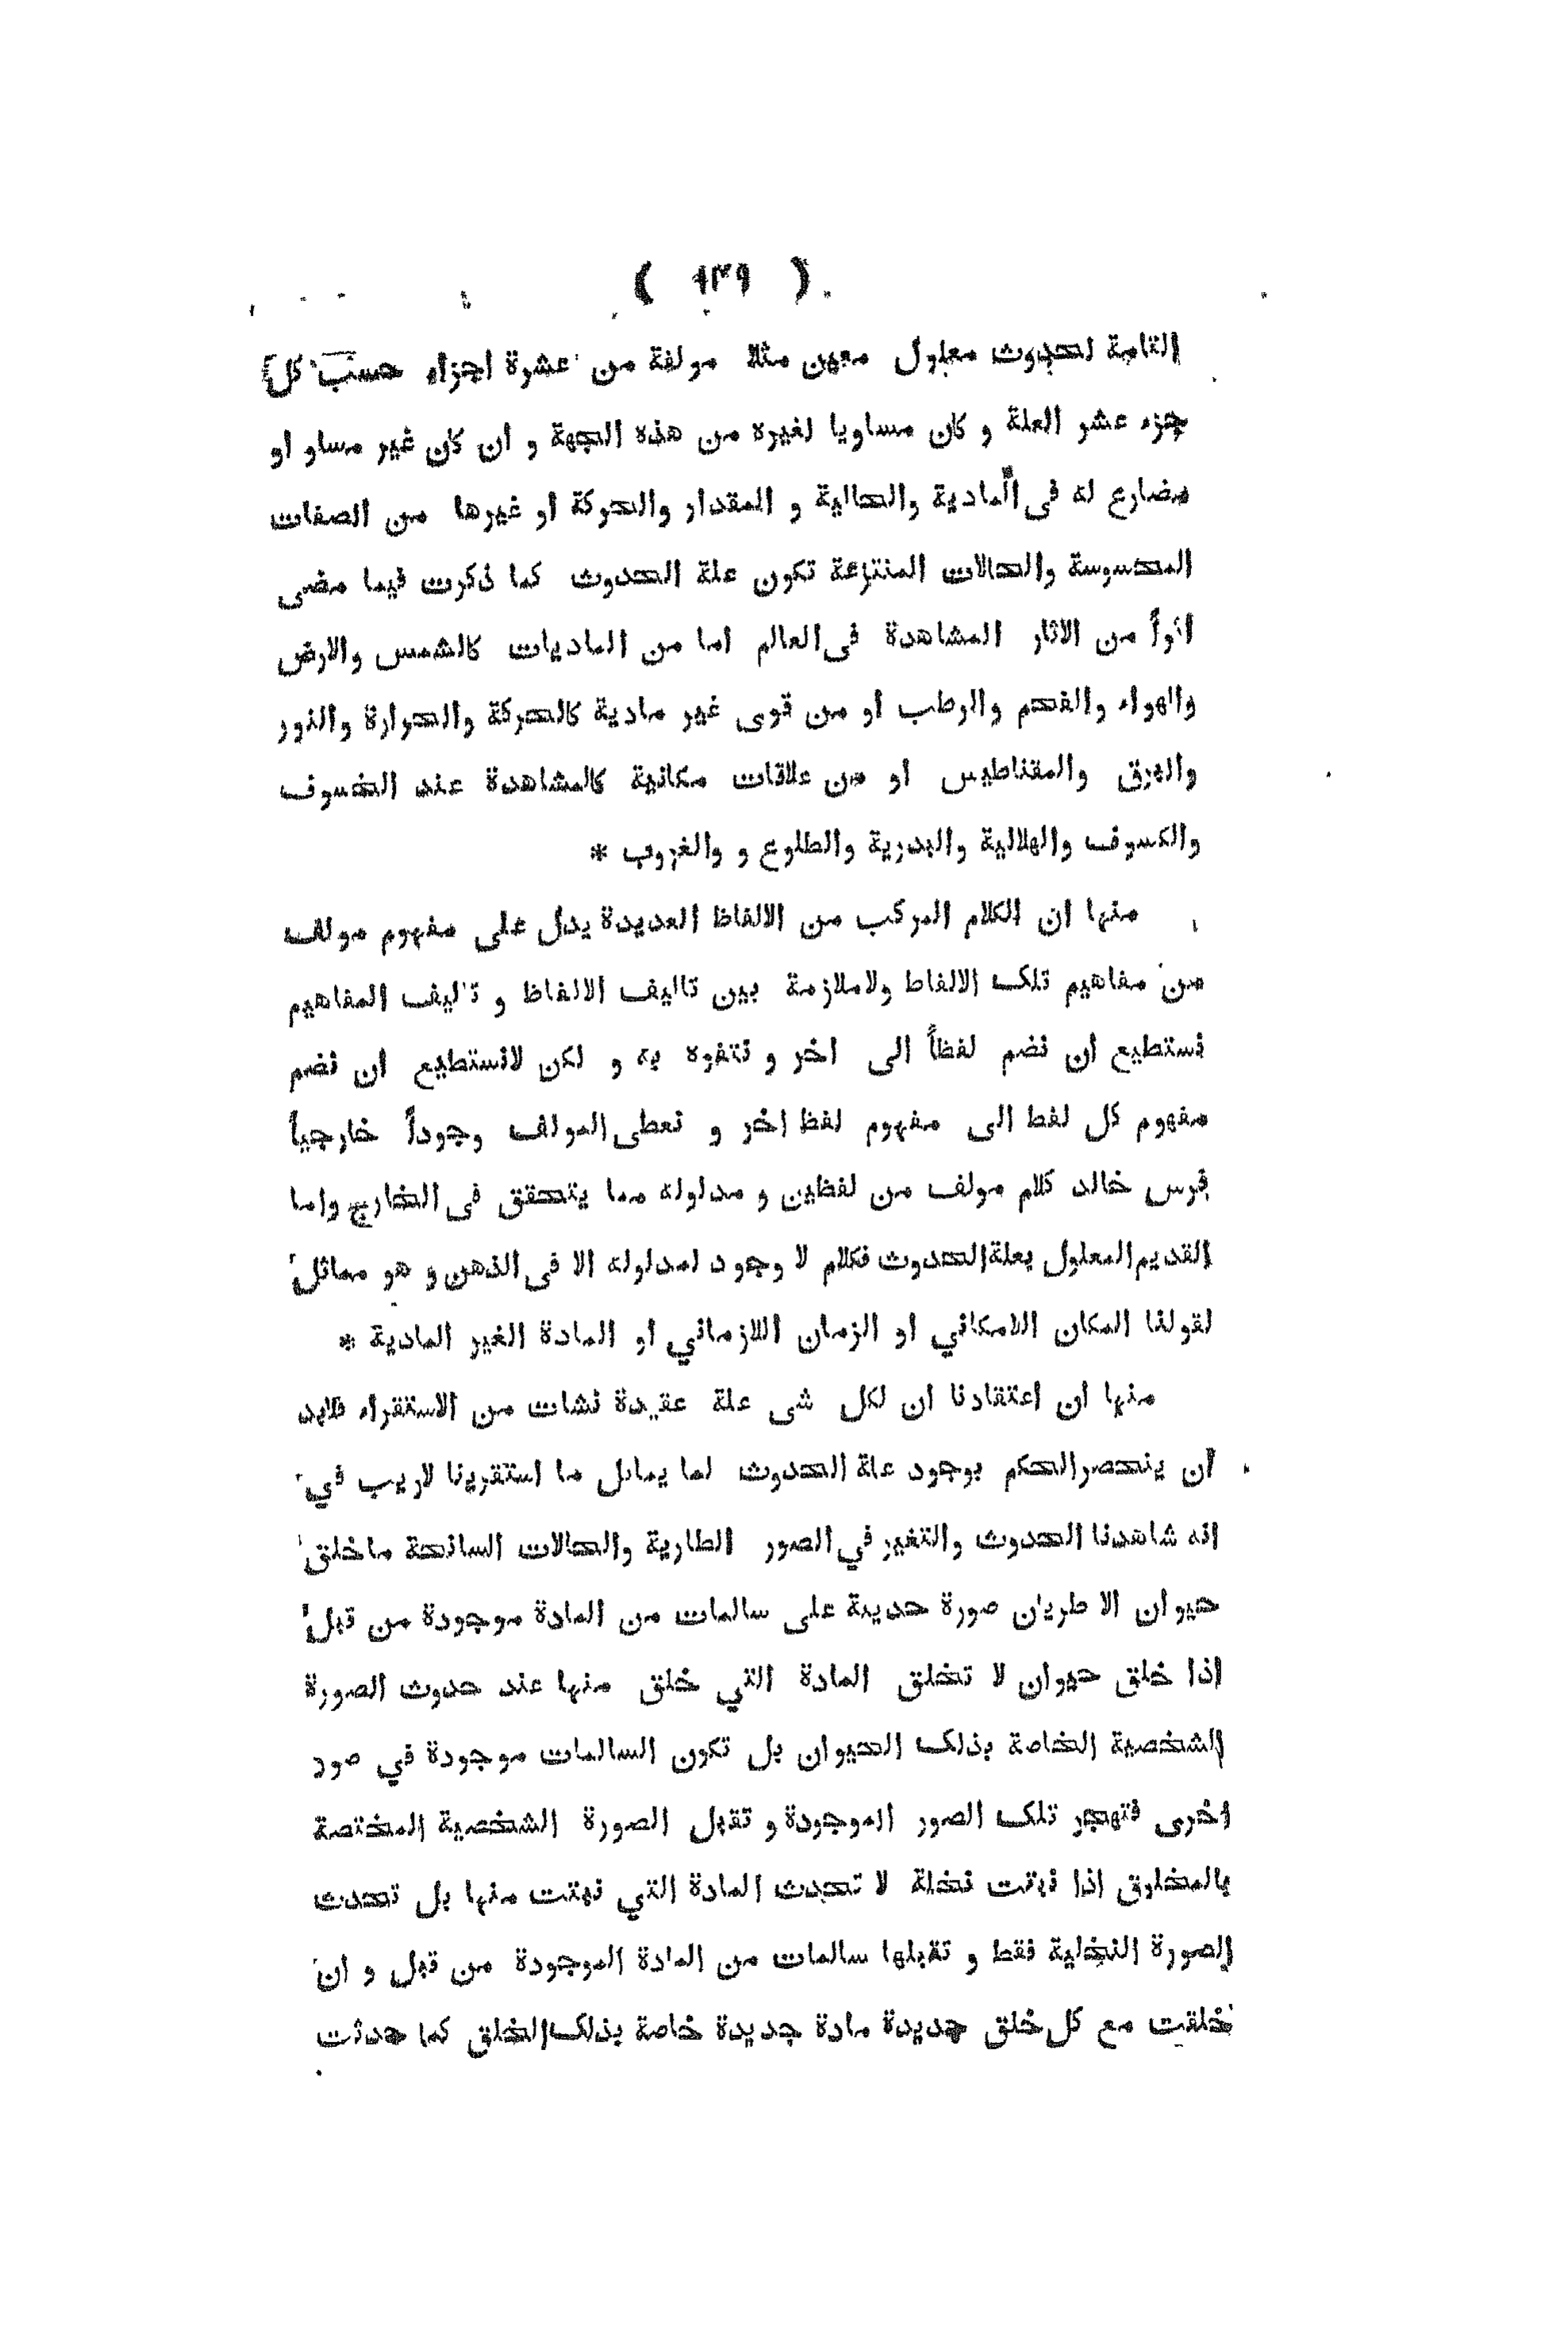 ( ١٣٩ )
التامة لحدوث معلول معين مثلا مولفة من عشرة اجزاء حسب كل
جزء عشر العلة و كان مساويا لغيره من هذه الجهة و ان كان غير مساو او
مضارع له فى المادية والحالية و المقدار والحركة او غيرها من الصفات
المحسوسة والحالات المنتزعة تكون علة الحدوث كما ذكرت فيما مضى
من الاثار المشاهدة فى العالم اما من الماديات كالشمس والارض
والهواء والفحم والرطب او من قوى غير مادية كالحركة والحرارة والنور
والبرق والمقناطيس او من علاقات مكانية كالمشاهدة عند الخسوف
والكسوف والهلالية والبدرية والطلوع و والغروب *
منها ان الكلام المركب من الالفاظ العديدة يدل على مفهوم مولف
من مفاهيم تلك الالفاط ولاملازمة بين تااليف الالفاظ و تاليف المفاهيم
نستطيع ان نضم لفظاً الى اخر و نتفوه به و لكن لانستطيع ان نضم
مفهوم كل لفط الى مفهوم لفظ اخر و نعطى المولف وجوداً خارجياً
فرس خالد كلام مولف من لفظين و مدلوله مما يتحقق فى الخارج واما
القديم المعلول بعلة الحدوث فكلام لا وجود لمدلوله الا فى الذهن و هو مماثل
لقولنا المكان اللامكاني او الزمان اللازماني او المادة الغير المادية *
منها ان اعتقادنا ان لكل شى علة عقيدة نشات من الاستقراء فلابد
ان ينحصر الحكم بوجود علة الحدوث لما يماثل ما استقرينا لاريب في
انه شاهدنا الحدوث والتغير في الصور الطارية والحالات السانحة ماخلق
حيوان الا طريان صورة حديثة على سالمات من المادة موجودة من قبل
اذا خلق حيوان لا تخلق المادة التي خلق منها عند حدوث الصورة
الشخصية الخاصة بذلك الحيوان بل تكون السالمات موجودة في صور
اخرى فتهجر تلك الصور الموجودة و تقبل الصورة الشخصية المختصة
بالمخلوق اذا نبتت نخلة لا تحدث المادة التي نبتت منها بل تحدث
الصورة النخلية فقط و تقبلها سالمات من المادة الموجودة من قبل و ان
خلقت مع كل خلق جديدة مادة جديدة خاصة بذلك الخلق كما حدثت